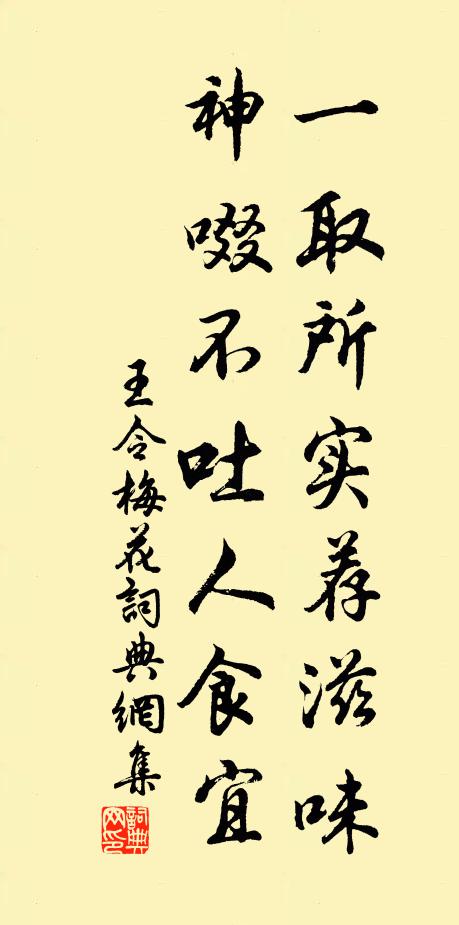 一取所实荐滋味
神啜不吐人食宜
王令梅花詞典網集
詞典
网印